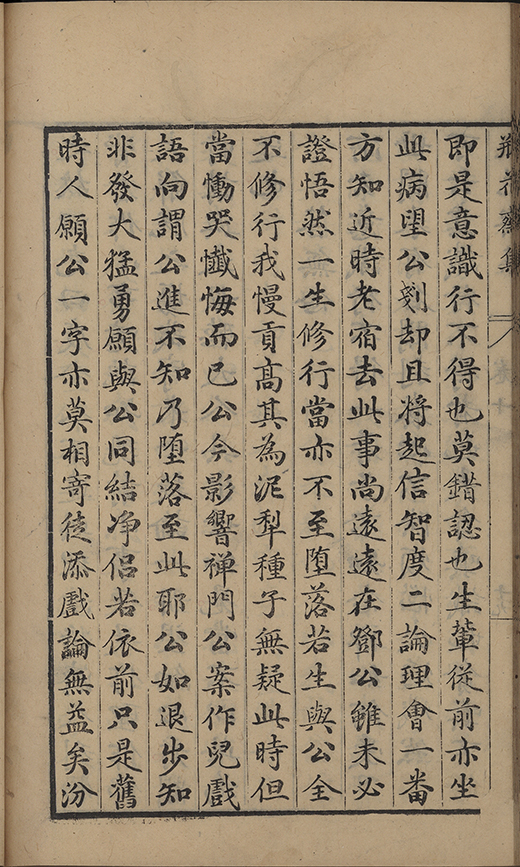 瓶花齋集
即是意識行不得也莫錯認也生輩従前亦坐
此病望公剗却且将起信智度二論理會一番
方知近時老宿去此事尚遠遠在鄧公雖未必
證悟然一生修行當亦不至堕落若生與公全
不修行我慢貢高其為泥犁種子無疑此時但
當慟哭懺悔而已公今影響禅門公案作兒戲
語向謂公進不知乃堕落至此耶公如退步知
非發大猛勇願與公同結淨侣若依前只是舊
時人願公一字亦莫相寄徒添戲論無益矣汾